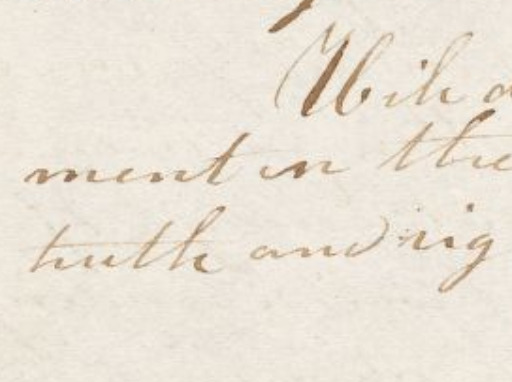 With a
ment in the
truth and rig